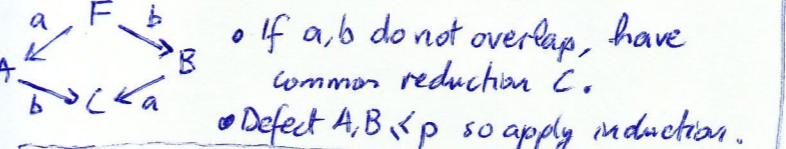 a F b
• If a,b do not overlap, have
A B
common reduction C.
b C a
• Defect A,B < p so apply induction.